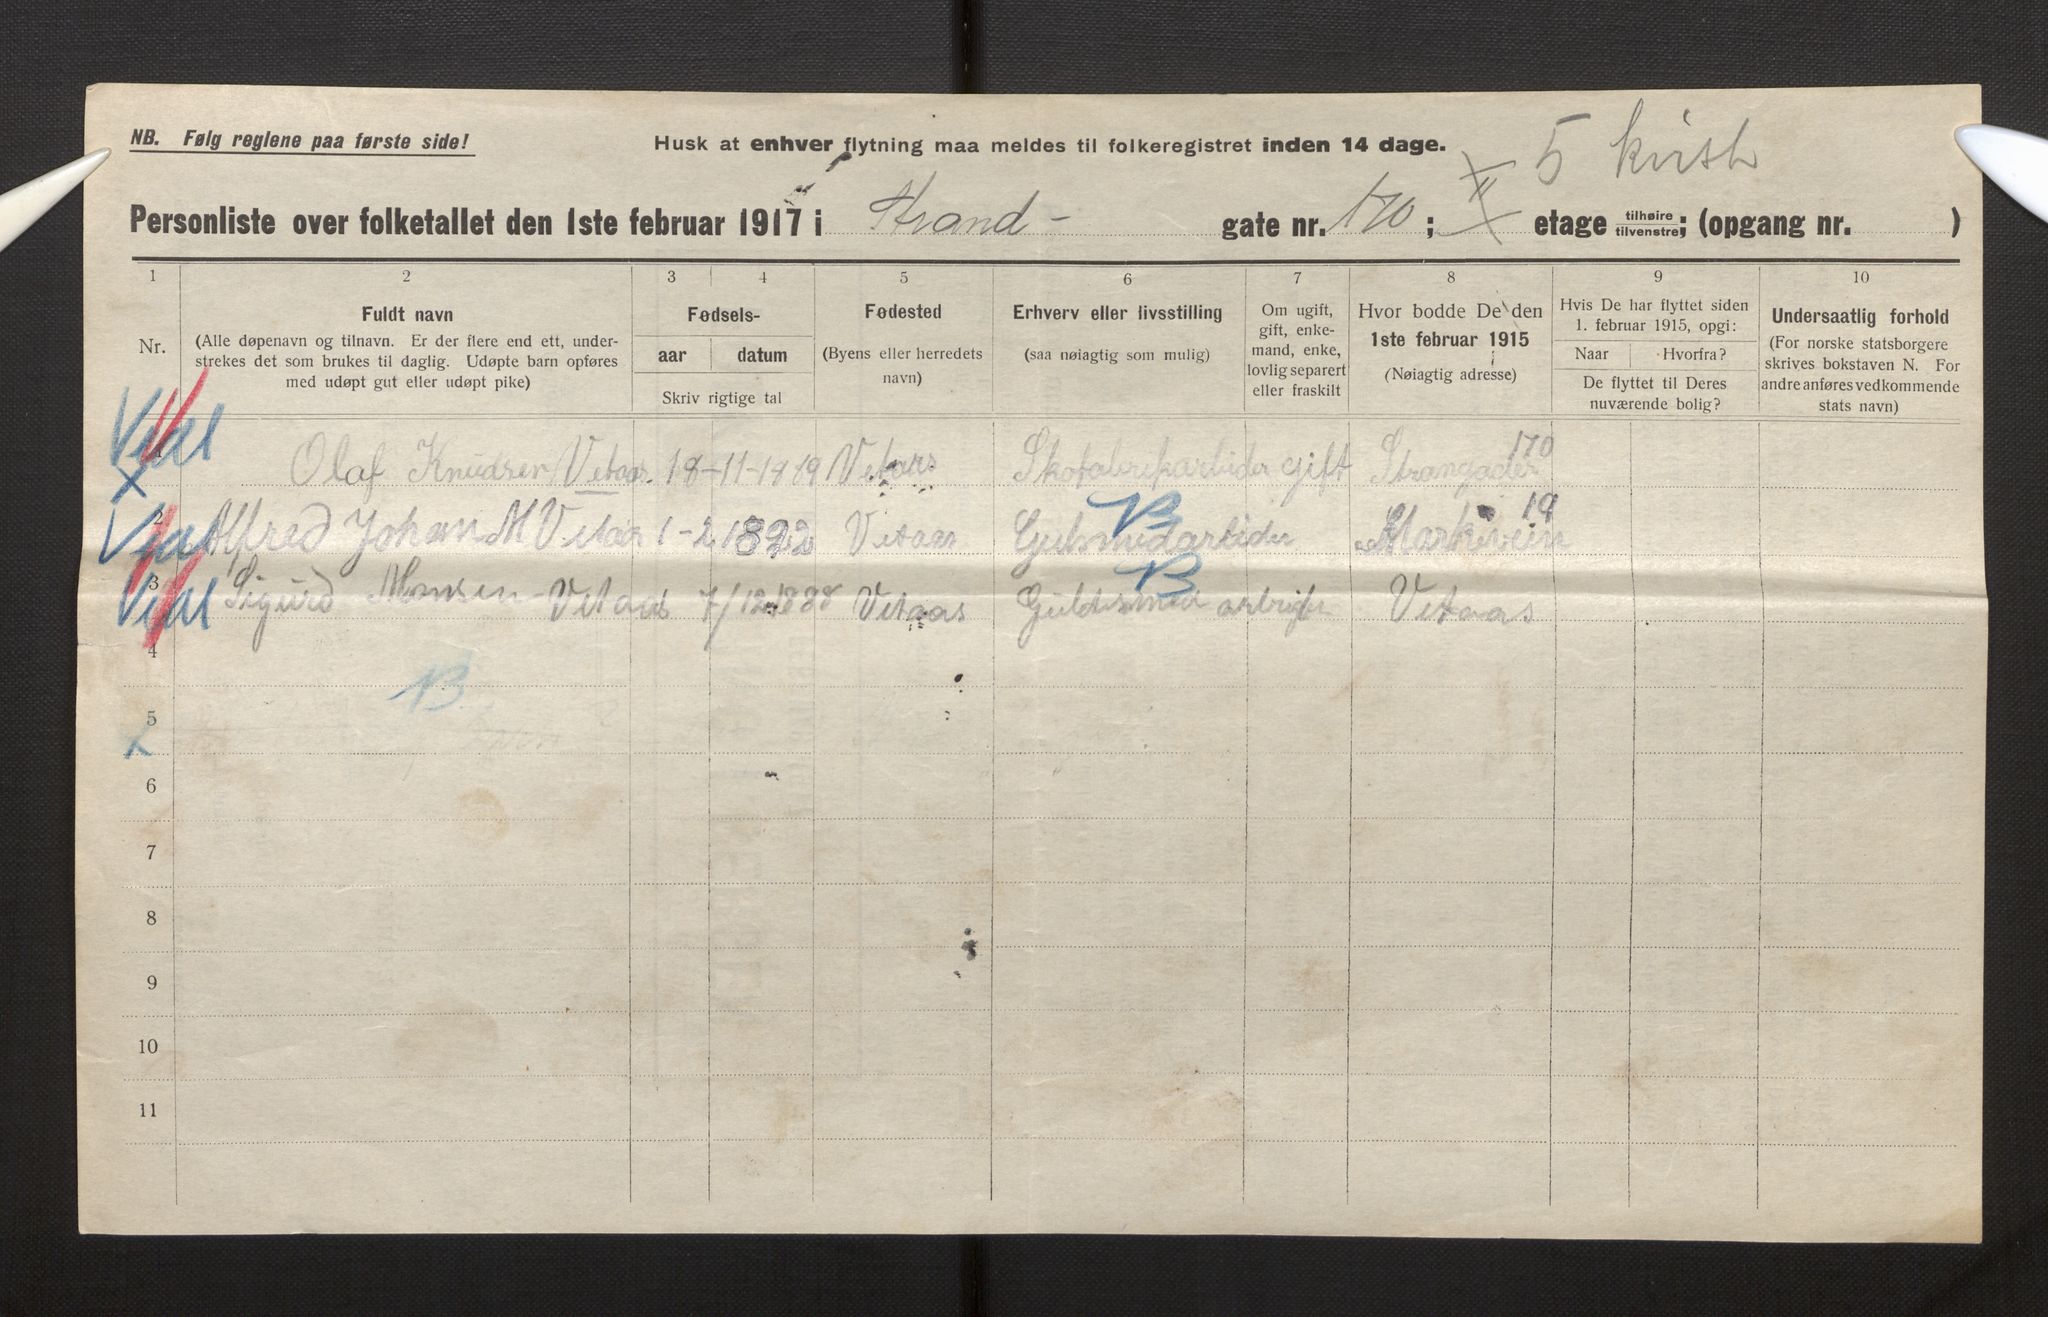 NB. Følg reglene paa første side!
Husk at enhver flytning maa meldes til folkeregistret inden 14 dage.
5 kvist
Personliste over folketallet den 1ste februar 1917 i Strand- gate nr. 170; II etage tilhøire tilvenstre; (opgang nr. )
1 2 3 4 5 6 7 8 9 10
Nr.
Fuldt navn
(Alle døpenavn og tilnavn. Er der flere end ett, under-
strekes det som brukes til daglig. Udøpte barn opføres
med udøpt gut eller udøpt pike)
Fødsels-
aar datum
Skriv rigtige tal
Fødested
(Byens eller herredets
navn)
Erhverv eller livsstilling
(saa nøiagtig som mulig)
Om ugift,
gift, enke-
mand, enke,
lovlig separert
eller fraskilt
Hvor bodde De den
1ste februar 1915
(Nøiagtig adresse)
Hvis De har flyttet siden
1. februar 1915, opgi:
Naar Hvorfra?
De flyttet til Deres
nuværende bolig?
Undersaatlig forhold
(For norske statsborgere
skrives bokstaven N. For
andre anføres vedkommende
stats navn)
1 Olaf Knudsen Vetaas 18-11-1889 Vetaas Skofabrikarbeider gift Strangaden 170
2 Alfred Johan M Vetaas 1-2 1892 Vetaas Gulsmedarbeider Markevein 19
3 Sigurd Monsen Vetaas 7/12 1888 Vetaas Guldsmed arbeider Vetaas
B
B
4
B
5
6
7
8
9
10
11